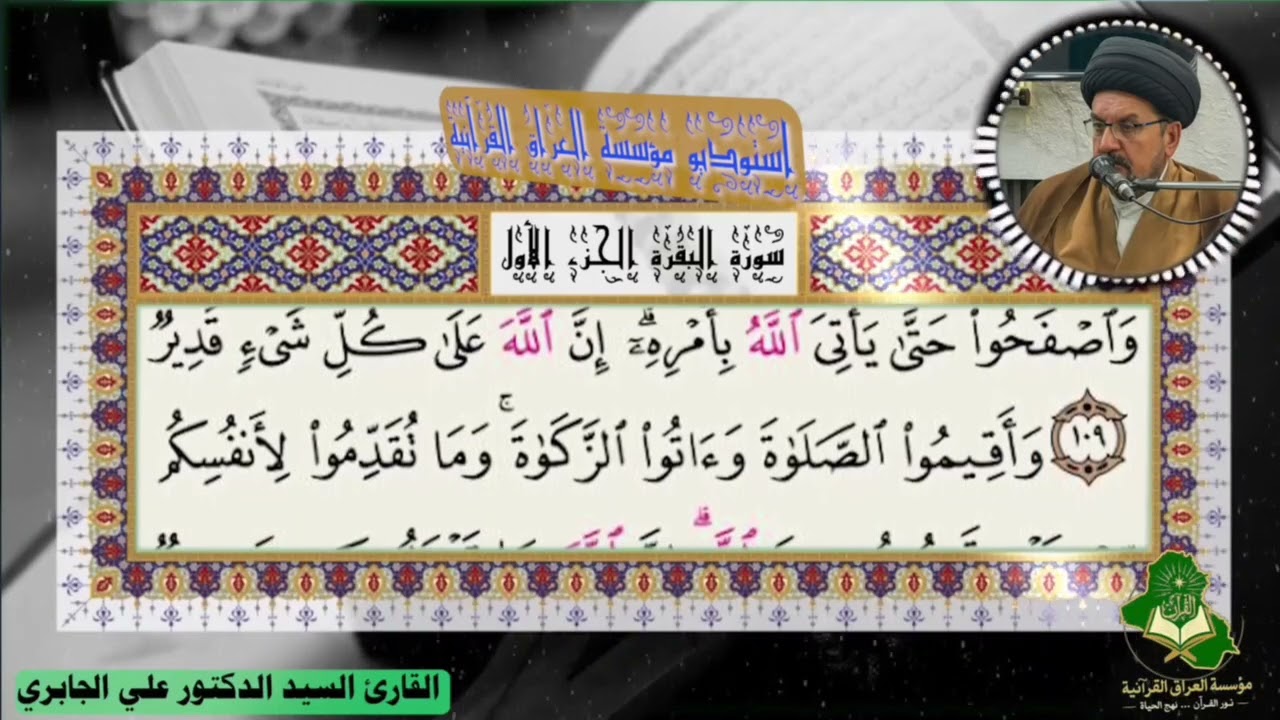 استوديو مؤسسة العراق القرآنية
سورة البقرة الجزء الأول
وَٱصۡفَحُواْ حَتَّىٰ يَأۡتِيَ ٱللَّهُ بِأَمۡرِهِۦٓۗ إِنَّ ٱللَّهَ عَلَىٰ كُلِّ شَيۡءٖ قَدِيرٞ
١٠٩ وَأَقِيمُواْ ٱلصَّلَوٰةَ وَءَاتُواْ ٱلزَّكَوٰةَۚ وَمَا تُقَدِّمُواْ لِأَنفُسِكُم
القرآن
مؤسسة العراق القرآنية
نور القرآن ... نهج الحياة
القارئ السيد الدكتور علي الجابري